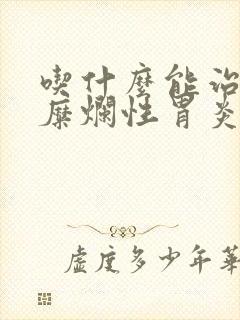 喫什麼能治
糜爛性胃炎
虛度多少年華